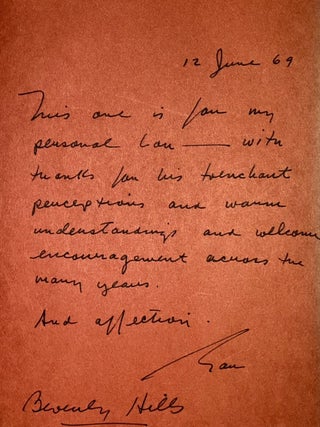 12 June 69
This one is for my
personal         — with
thanks for his trenchant
perceptions and warm
understandings and welcome
encouragement across the
many years.
And affection.
Beverly Hills